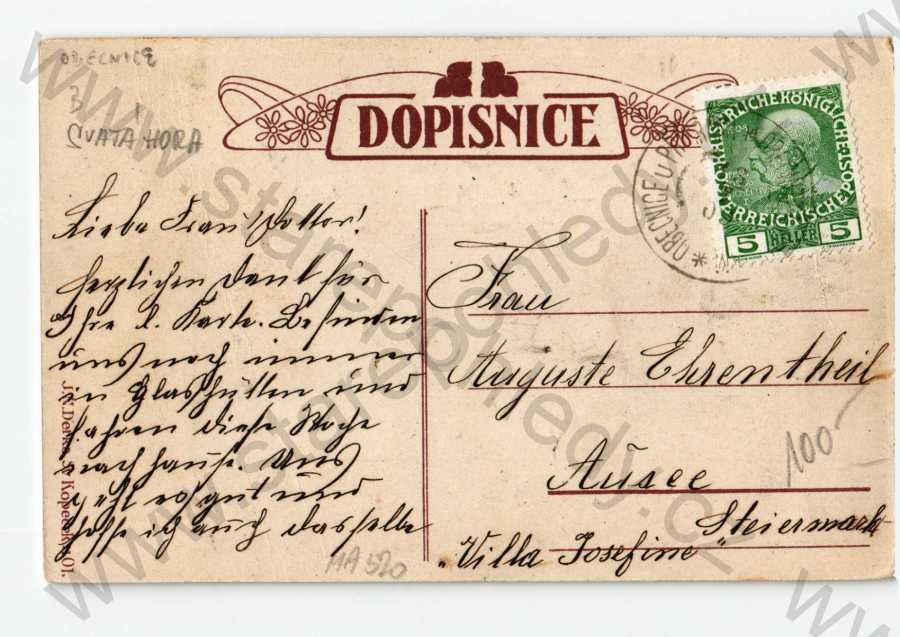 OBECNICE
B
SVATA HORA
DOPISNICE
KAISERLICHE KÖNIGLICHE
ÖSTERREICHISCHE POST
5 HELLER 5
* OBECNICE U PŘ
Liebe Frau Doktor!
Herzlichen Dank für
Ihre l. Karte. Befinden
uns noch immer
in Glashütten und
fahren diese Woche
nach hause. Uns
geht es gut und
hoffe ich auch dasselbe
Frau
Auguste Ehrentheil
Ausee
Steiermark
"Villa Josefine"
100-
MA 520
www.starepohledy.cz